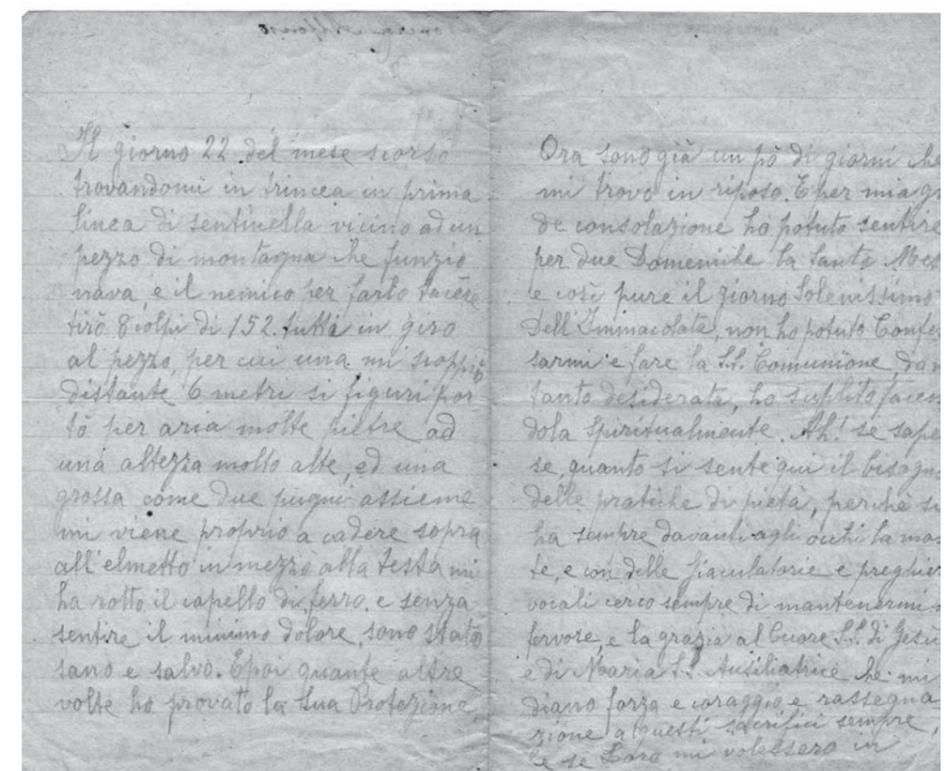 Il giorno 22 del mese scorso
trovandomi in trincea in prima
linea di sentinella vicino ad un
pezzo di montagna che funzio
nava, e il nemico per farlo tacere
tirò 8 colpi di 152. tutti in giro
al pezzo, per cui una mi scoppiò
distante 6 metri si figuri por
tò per aria molte pietre ad
una altezza molto alte, ed una
grossa come due pugni assieme
mi viene proprio a cadere sopra
all'elmetto in mezzo alla testa mi
ha rotto il capello di ferro. e senza
sentire il minimo dolore, sono stato
sano e salvo. E poi quante altre
volte ho provato la Sua Protezione,
Ora sono già un pò di giorni che
mi trovo in riposo. E per mia g
de consolazione ho potuto sentire
per due Domeniche la Santa Mes
e così pure il giorno Solenissimo
dell'Immacolata, non ho potuto Confe
sarmi e fare la S.S. Comunione, da
tanto desiderata, ho suplito facen
dola Spiritualmente. Ah! se sape
se, quanto si sente qui il bisogn
delle pratiche di pietà, perchè si
ha sempre davanti agli occhi la mor
te, e con delle giaculatorie e preghier
vocali cerco sempre di mantenermi
fervose, e la grazia al Cuore S.S. di Gesù
e di Maria S.S. Ausiliatrice che mi
diano forza e coraggio, e rassegna
zione a questi sacrifici sempre,
e se Loro mi volessero in